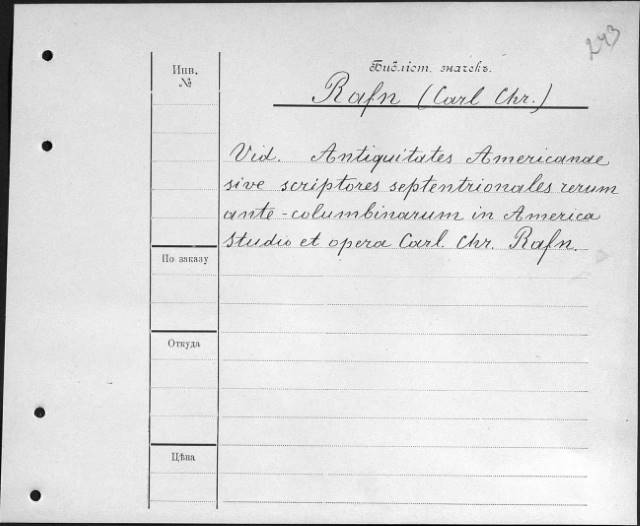 243
Инв.
№
Библіот. значекъ.
Rafn (Carl Chr.)
Vid. Antiquitates Americanae
sive scriptores septentrionales rerum
ante-columbinarum in America
Studio et opera Carl. Chr. Rafn.
По заказу
Откуда
Цѣна